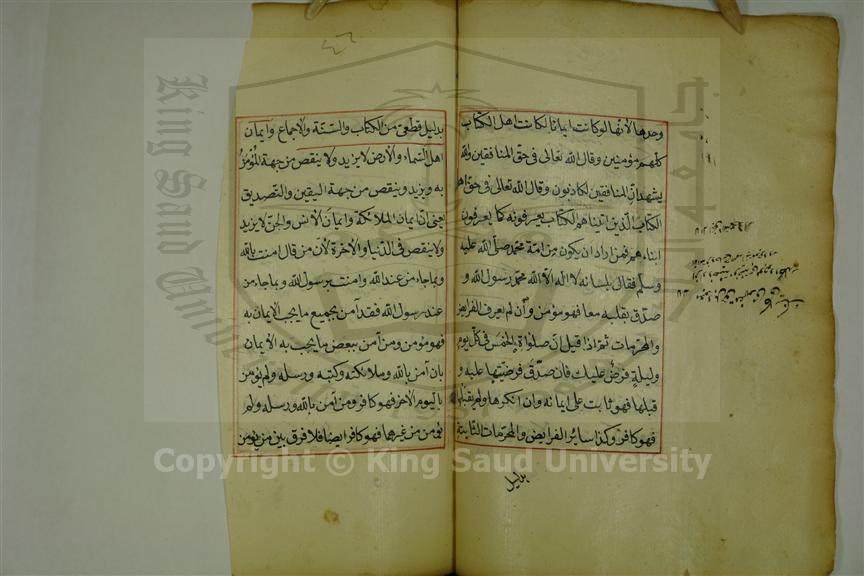 وحدها لأنها لو كانت ايمانا لكانت اهل الكتاب
كلهم مؤمنين وقال الله تعالى في حق المنافقين والله
يشهد ان المنافقين لكاذبون وقال الله تعالى في حق اهل
الكتاب الذين اتيناهم الكتاب يعرفونه كما يعرفون
ابناءهم فمن اراد ان يكون من امة محمد صلى الله عليه
وسلم فقال بلسانه لا اله الا الله محمد رسول الله و
صدق بقلبه معا فهو مؤمن وان لم يعرف الفرايض
والمحرمات ثم اذا قيل ان صلواة الخمس في كل يوم
وليلة فرض عليك فان صدق فرضيتها عليه و
قبلها فهو ثابت على ايمانه وان انكرها ولم يقبلها
فهو كافر وكذا سائر الفرايض والمحرمات الثابتة
بدليل
بدليل قطعي من الكتاب والسنة والاجماع وايمان
اهل السماء والارض لا يزيد ولا ينقص من جهة المؤمن
به ويزيد وينقص من جهة اليقين والتصديق
يعني ان ايمان الملائكة وايمان الانس والجن لا يزيد
ولا ينقص في الدنيا والاخرة لان من قال امنت بالله
وبما جاء من عند الله وامنت برسول الله وبما جاء من
عند رسول الله فقد آمن بجميع ما يجب الايمان به
فهو مؤمن ومن آمن ببعض ما يجب به الايمان
بان آمن بالله وملائكته وكتبه ورسله ولم يؤمن
باليوم الآخر فهو كافر ومن آمن بالله ورسله ولم
يؤمن من غيرها فهو كافر ايضا فلا فرق بين من يؤمن
King Saud University
Copyright © King Saud University